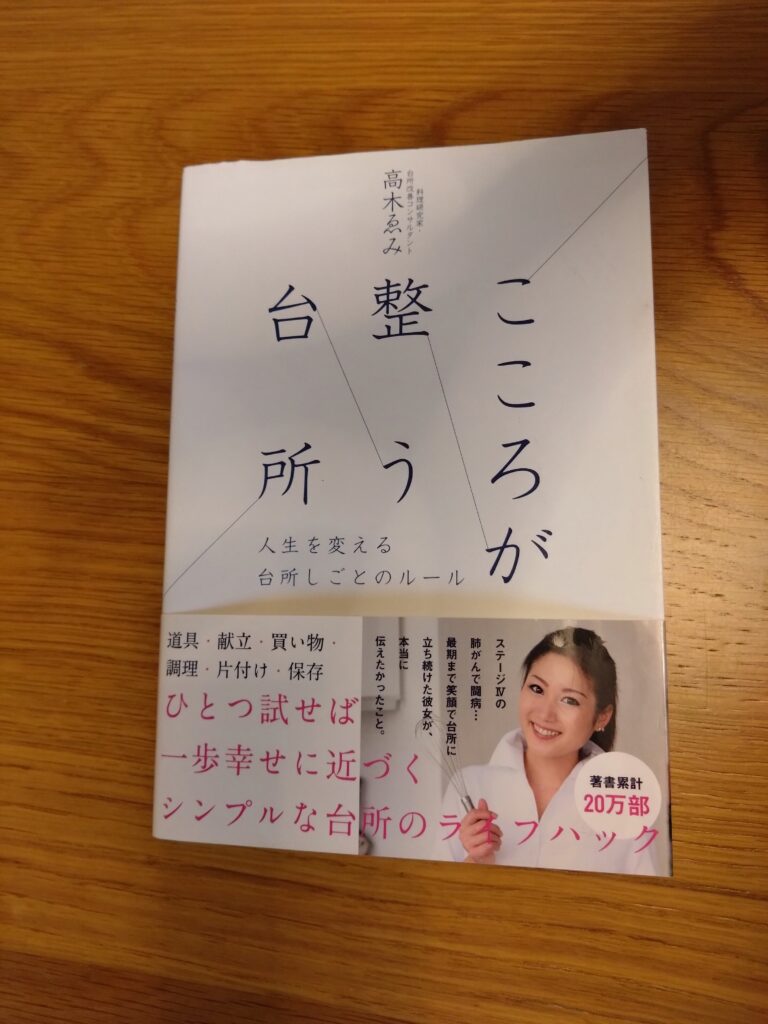 料理研究家・
台所改善コンサルタント
高木ゑみ
こころが
整う
台所
人生を変える
台所しごとのルール
道具・献立・買い物・
調理・片付け・保存
ひとつ試せば
一歩幸せに近づく
シンプルな台所のライフハック
ステージⅣの
肺がんで闘病…
最期まで笑顔で台所に
立ち続けた彼女が、
本当に
伝えたかったこと。
著書累計
20万部